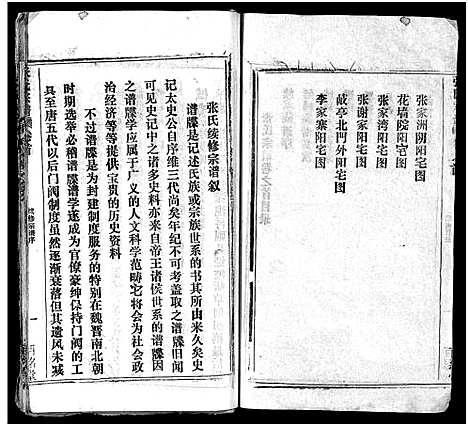 张家洲阴阳宅图
花墙院阳宅图
张谢家阳宅图
敁亭北门外阳宅图
李家寨阳宅图
张氏续修宗谱叙
谱牒是记述氏族或宗族世系的书其所由来久矣史
记太史公自序维三代尚矣年纪不可考盖取之谱牒旧闻
可见史记中之诸多史料亦来自帝王诸侯世系的谱牒因
之谱牒学应属于广义的人文科学范畴它将会为社会政
治经济等等提供宝贵的史料资料
不过谱牒是为封建制度服务的特别在魏晋南北朝
时期选举必稽谱牒谱学遂成为官僚豪绅保持门阀的工
具至唐五代以后门阀制度虽然逐渐衰落但其遗风未减
续修宗谱序
一